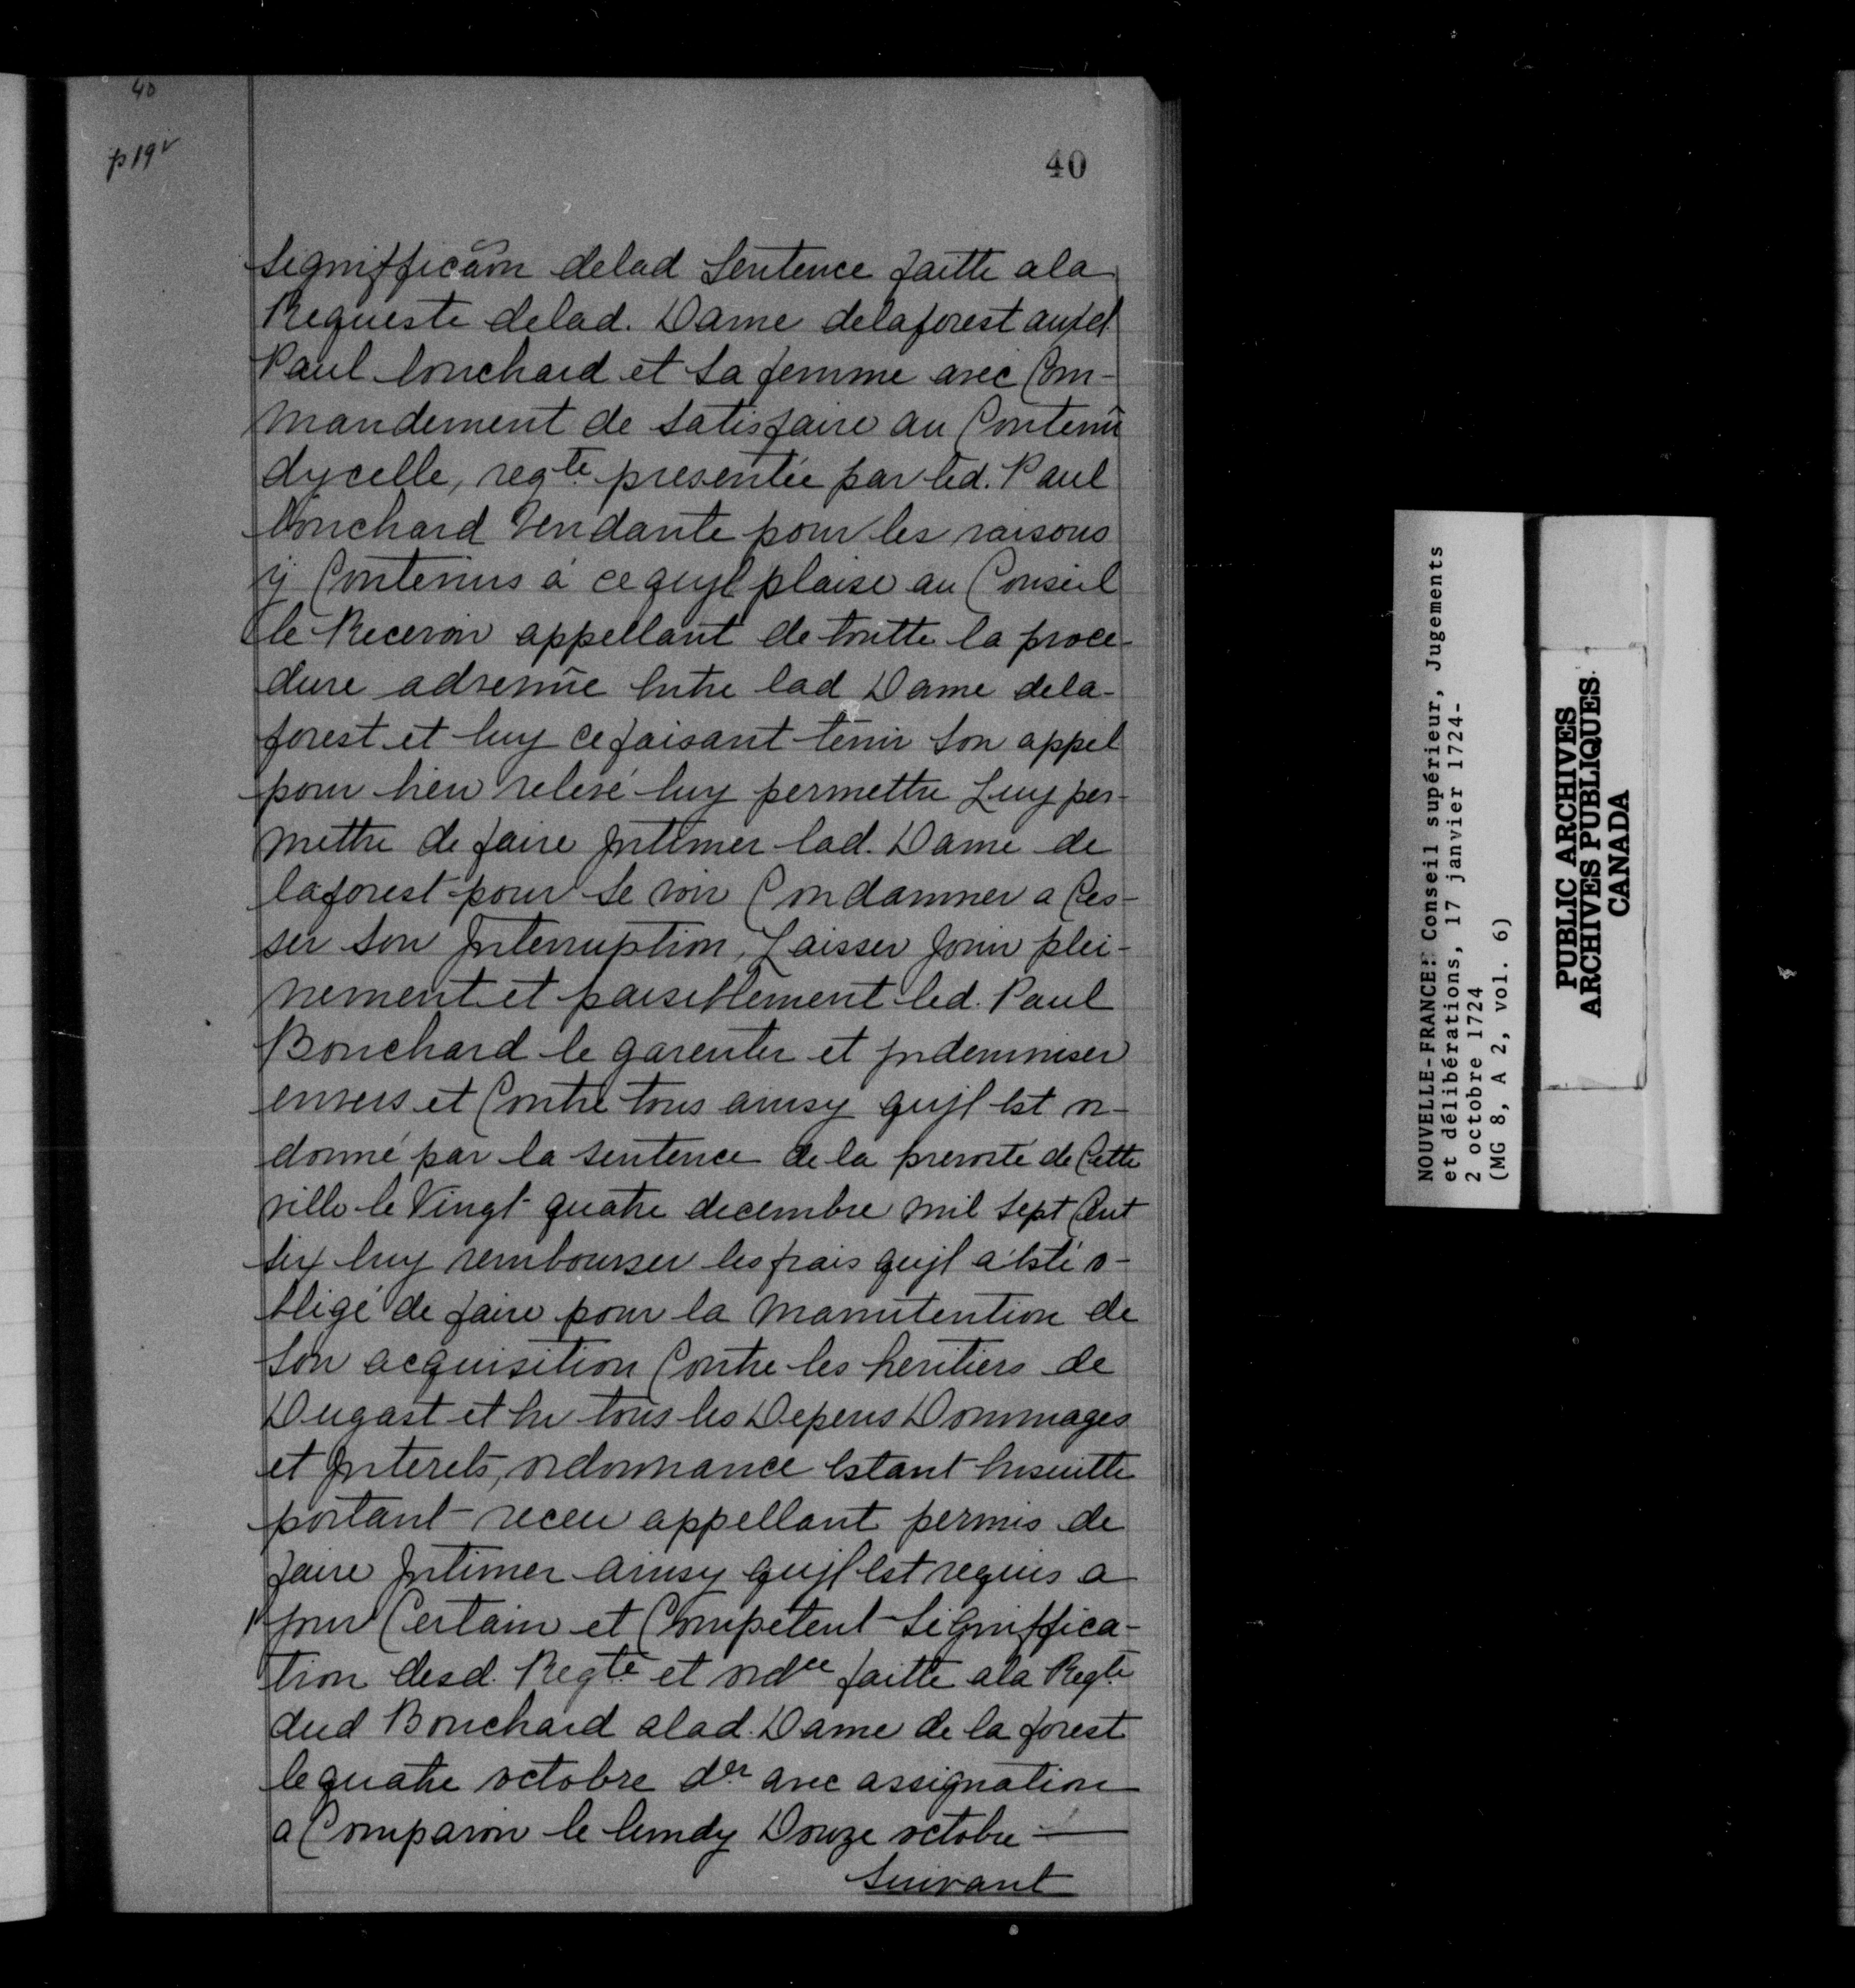 40
p 19v
40
signifficaōn delad Sentence faitte ala
Requeste delad. Dame delaforest aud.
Paul bouchard et Sa femme avec Com-
mandement de Satisfaire au Contenû
dycelle, reqte presentée par led. Paul
bouchard tendante pour les raisons
ÿ Contenus á ce quyl plaise au Conseil
le Recevoir appellant de toutte la proce-
dure advenûe Entre lad Dame dela-
forest et luy ce faisant tenir Son appel
pour bien relevé luy permettre Luy per-
mettre de faire Jntimer lad. Dame de
laforest pour se voir Condamner a Ces-
ser son Jnterruption, Laisser jouir plei-
nement et paisiblement led. Paul
Bouchard le garentir et jndemniser
envers et Contre tous ainsy qu'jl Est or-
donné par la sentence de la prevosté de Cette
ville le Vingt quatre decembre mil Sept Cent
six luy rembourser les frais qu'jl a Esté o-
bligé de faire pour la manutention de
Son acquisition Contre les heritiers de
Dugast et En tous les Depens Dommages
et Jnterets, ordonnance Estant Ensuitte
portant receu appellant permis de
faire Jntimer ainsy qu'jl Est requis a
jour Certain et Competent Signiffica-
tion desd. Reqte et ordce faitte ala Reqte
dud Bouchard alad. Dame de la forest
le quatre octobre der avec assignation
a Comparoir le lundy Douze octobre
Suivant
NOUVELLE-FRANCE: Conseil supérieur, Jugements
et délibérations, 17 janvier 1724-
2 octobre 1724
(MG 8, A 2, vol. 6)
PUBLIC ARCHIVES
ARCHIVES PUBLIQUES
CANADA